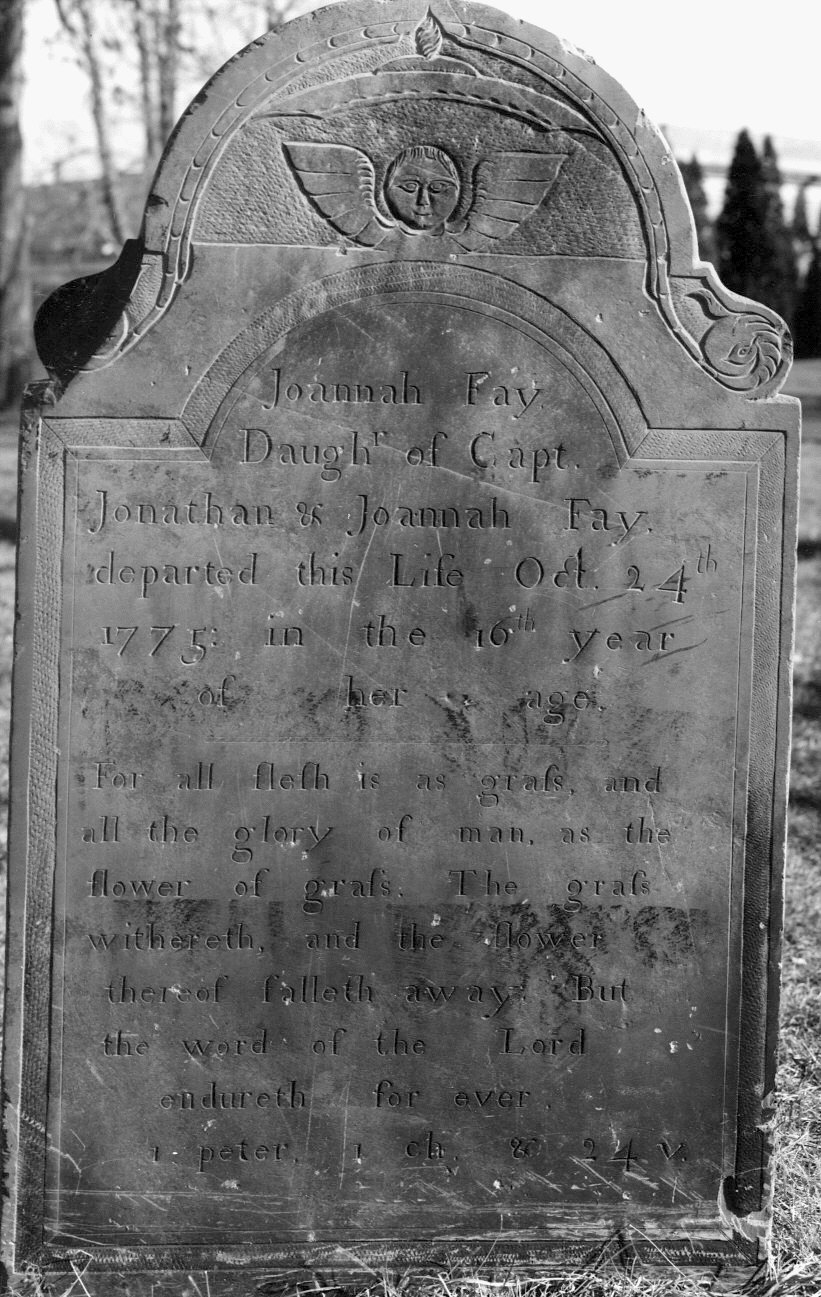 Joannah Fay,
Daughʳ of Capt.
Jonathan & Joannah Fay.
departed this Life Oct. 24ᵗʰ
1775: in the 16ᵗʰ year
of her age.
For all fleſh is as graſs, and
all the glory of man, as the
flower of graſs. The graſs
withereth, and the flower
thereof falleth away: But
the word of the Lord
endureth for ever.
1. peter, 1 ch. & 24 v.